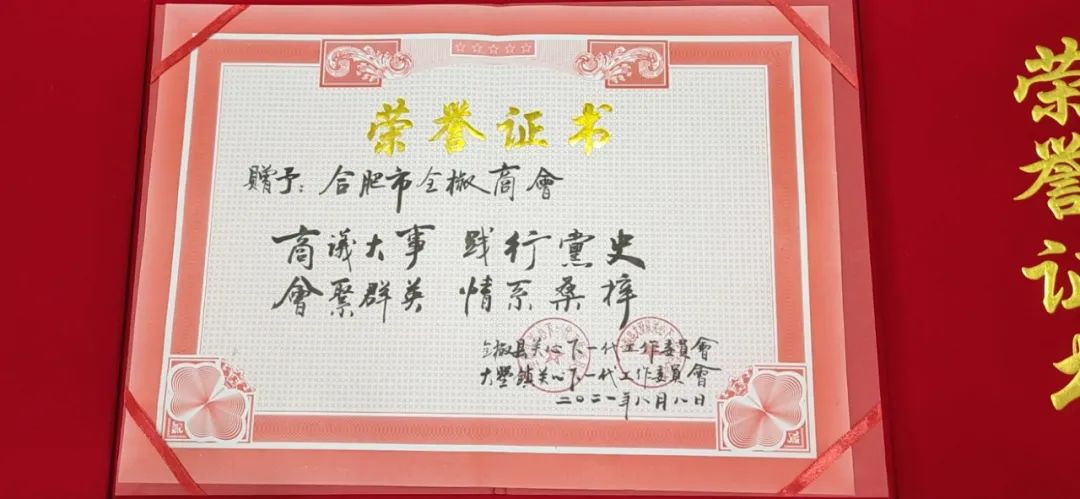 荣誉证书
贈予：合肥市全椒商會
商議大事 践行黨史
會聚群英 情系桑梓
全椒县关心下一代工作委員會
大墅鎮关心下一代工作委員會
二〇二一年八月八日
荣誉证书